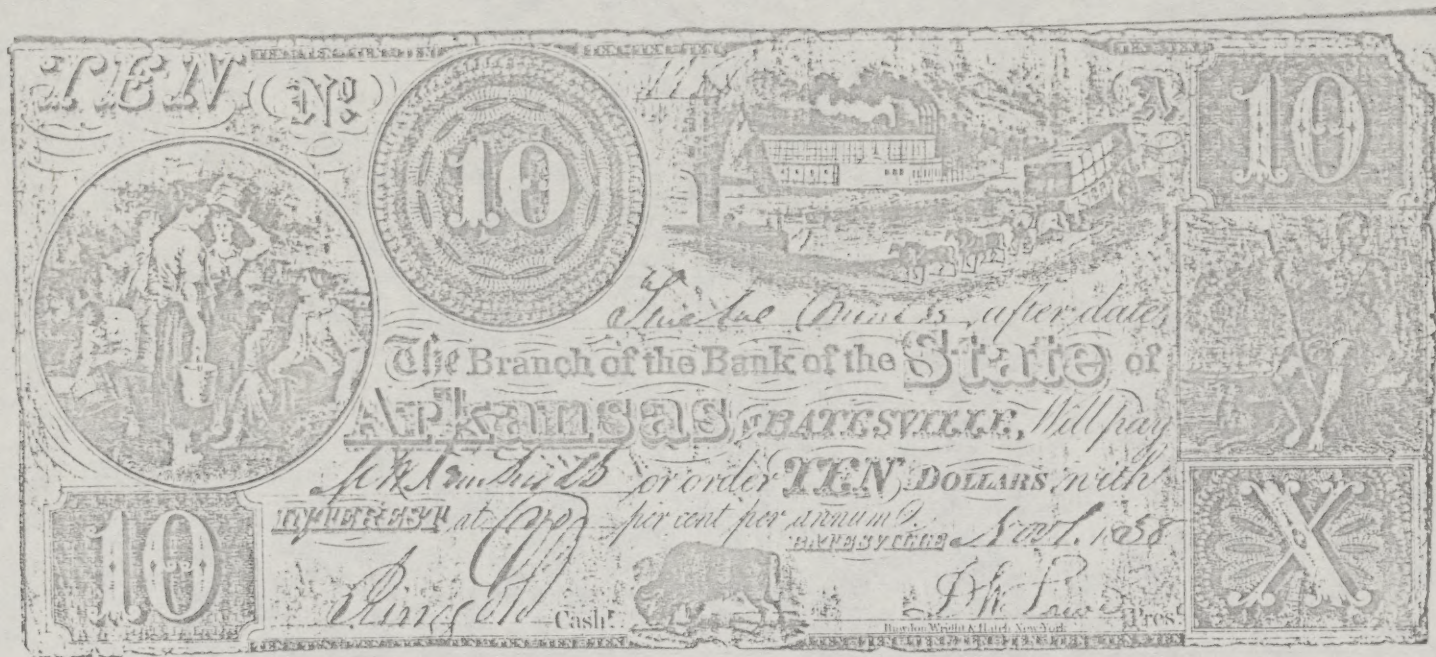 TEN No 10 A 10
Twelve Months after date,
The Branch of the Bank of the State of
Arkansas, BATESVILLE, Will pay
or order TEN DOLLARS, with
INTEREST at per cent per annum.
BATESVILLE Nov. 1. 1838
10 Cash.r Pres.t X
Rawdon, Wright & Hatch, New-York.